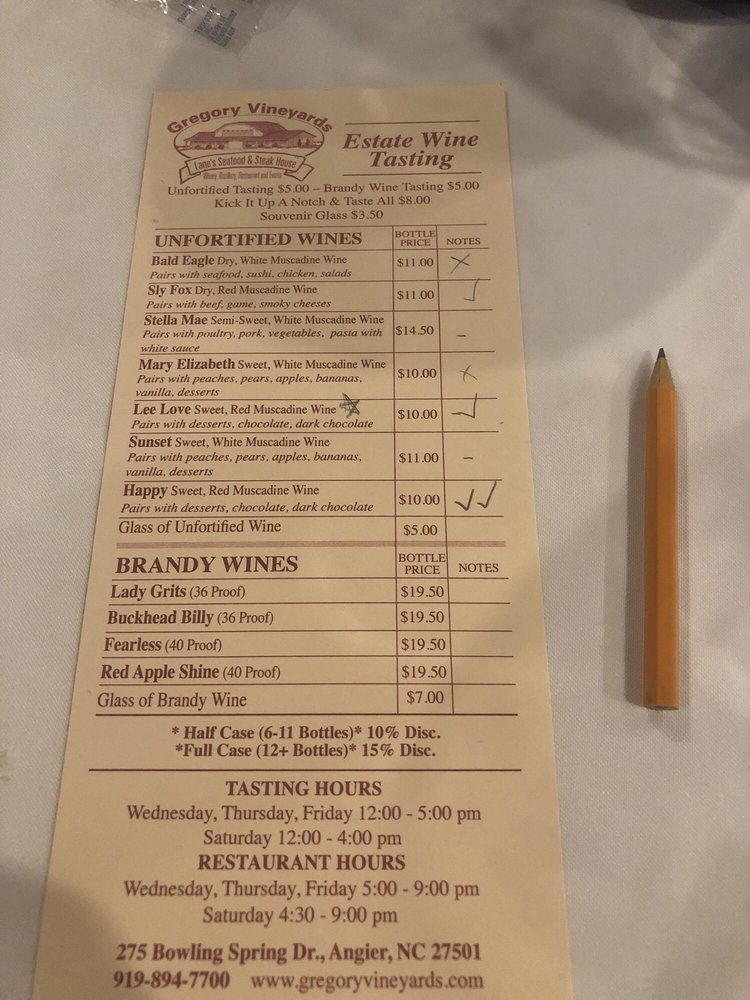 Gregory Vineyards
Lane's Seafood & Steak House
Winery, Distillery, Restaurant and Events
Estate Wine
Tasting
Unfortified Tasting $5.00 – Brandy Wine Tasting $5.00
Kick It Up A Notch & Taste All $8.00
Souvenir Glass $3.50
UNFORTIFIED WINES BOTTLE PRICE NOTES
Bald Eagle Dry, White Muscadine Wine $11.00
Pairs with seafood, sushi, chicken, salads
Sly Fox Dry, Red Muscadine Wine $11.00
Pairs with beef, game, smoky cheeses
Stella Mae Semi-Sweet, White Muscadine Wine $14.50
Pairs with poultry, pork, vegetables, pasta with
white sauce
Mary Elizabeth Sweet, White Muscadine Wine $10.00
Pairs with peaches, pears, apples, bananas,
vanilla, desserts
Lee Love Sweet, Red Muscadine Wine $10.00
Pairs with desserts, chocolate, dark chocolate
Sunset Sweet, White Muscadine Wine $11.00
Pairs with peaches, pears, apples, bananas,
vanilla, desserts
Happy Sweet, Red Muscadine Wine $10.00
Pairs with desserts, chocolate, dark chocolate
Glass of Unfortified Wine $5.00
BRANDY WINES BOTTLE PRICE NOTES
Lady Grits (36 Proof) $19.50
Buckhead Billy (36 Proof) $19.50
Fearless (40 Proof) $19.50
Red Apple Shine (40 Proof) $19.50
Glass of Brandy Wine $7.00
* Half Case (6-11 Bottles)* 10% Disc.
*Full Case (12+ Bottles)* 15% Disc.
TASTING HOURS
Wednesday, Thursday, Friday 12:00 - 5:00 pm
Saturday 12:00 - 4:00 pm
RESTAURANT HOURS
Wednesday, Thursday, Friday 5:00 - 9:00 pm
Saturday 4:30 - 9:00 pm
275 Bowling Spring Dr., Angier, NC 27501
919-894-7700 www.gregoryvineyards.com